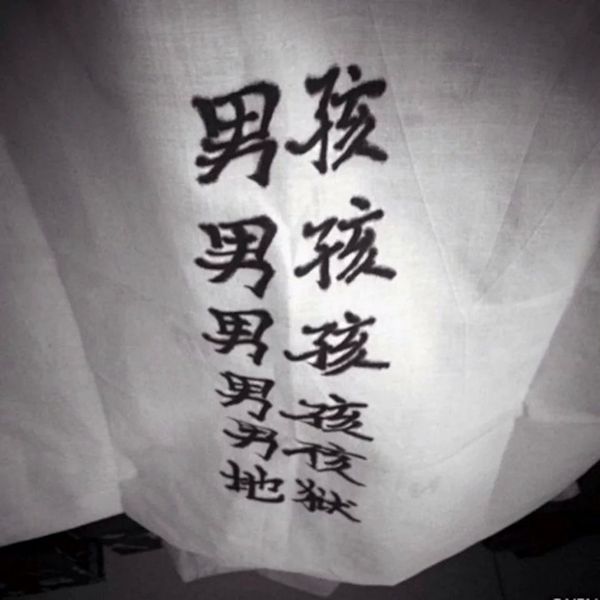 男孩
男孩
男孩
男孩
男孩
地獄